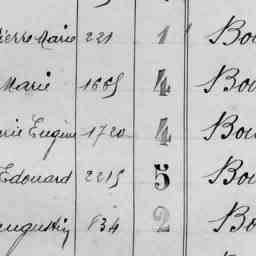 Pierre Marie 221 1 Bou
Marie 1665 4 Bou
rie Eugène 1720 4 Bou
Edouard 2215 5 Bou
ugustin 834 2 Bo